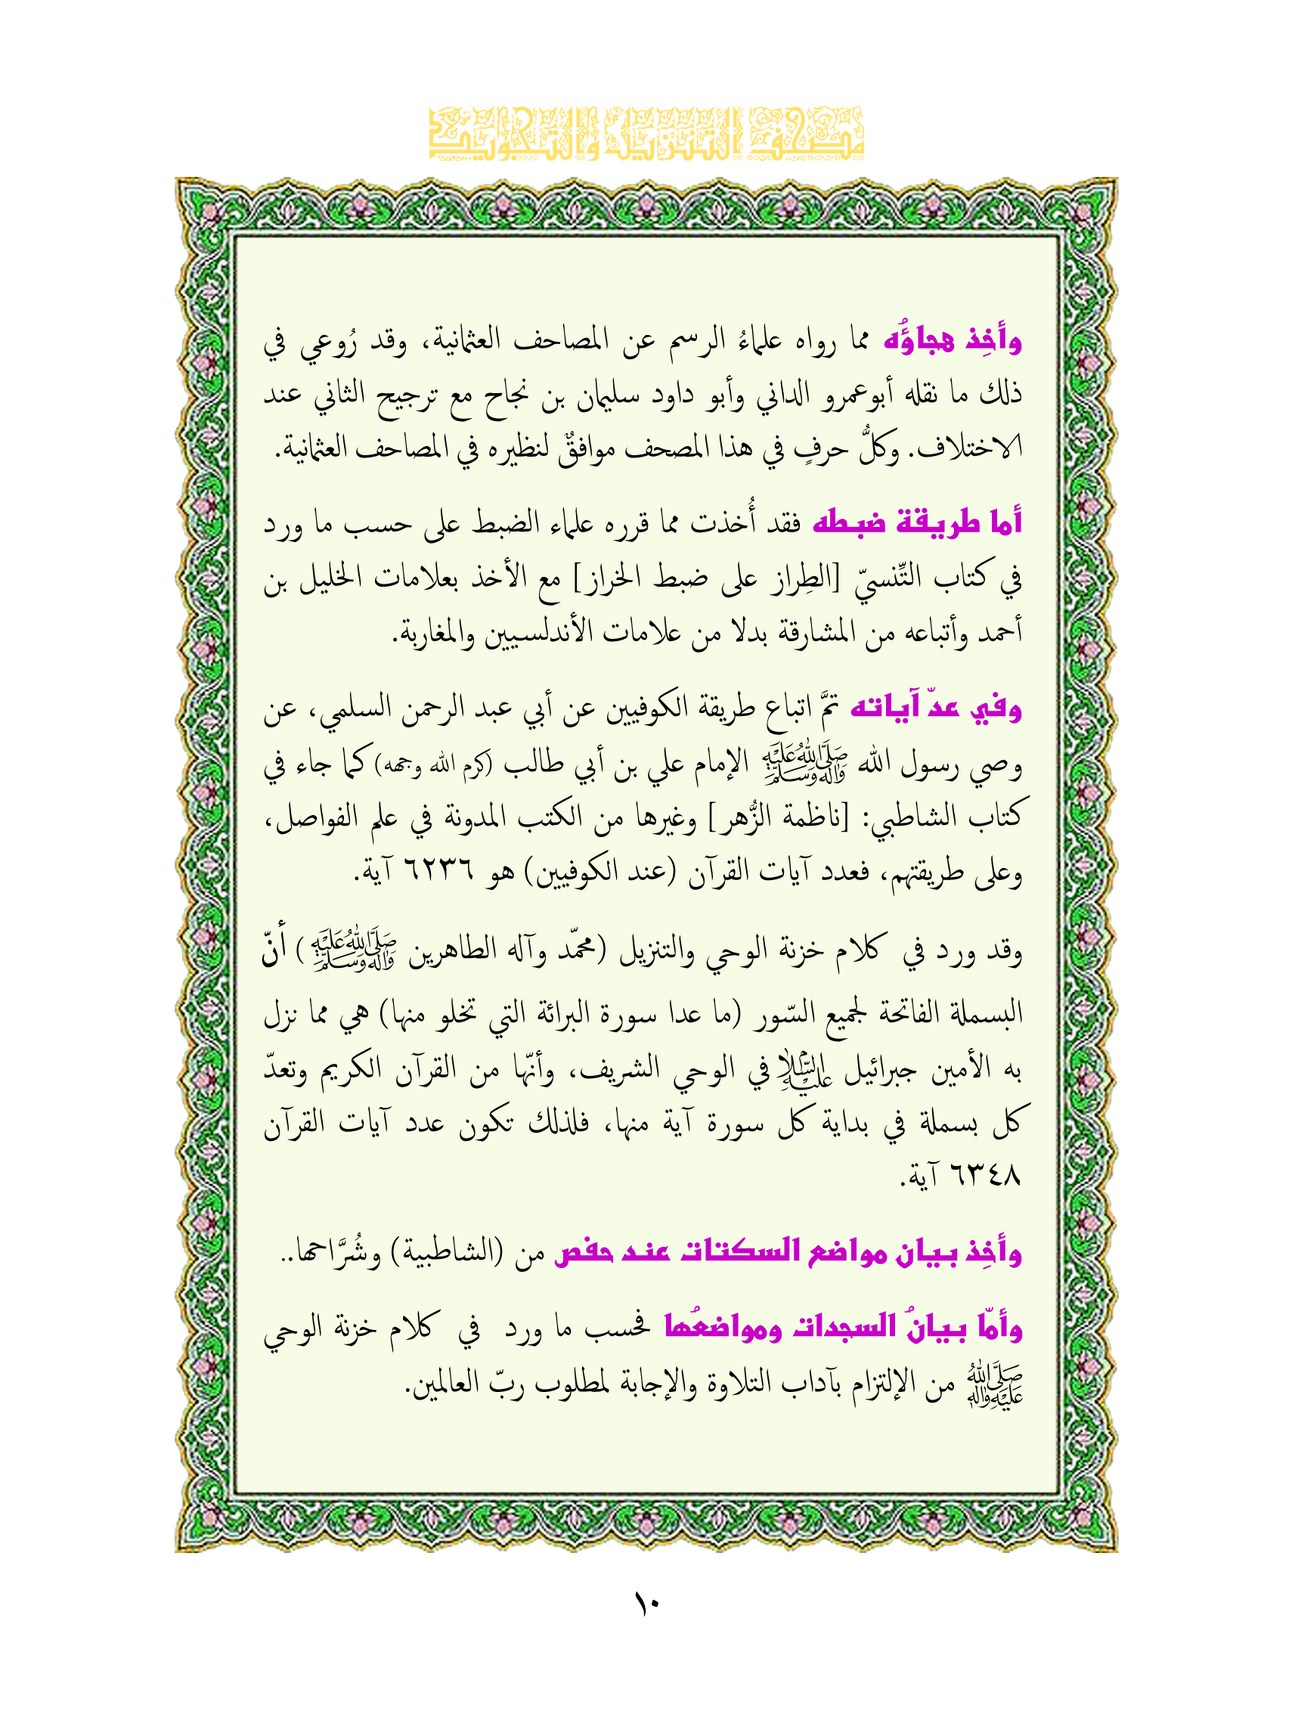 مصحف التنزيل والتبويب
وأخِذ هجاؤُه مما رواه علماءُ الرسم عن المصاحف العثمانية، وقد رُوعي في
ذلك ما نقله أبوعمرو الداني وأبو داود سليمان بن نجاح مع ترجيح الثاني عند
الاختلاف. وكلُّ حرفٍ في هذا المصحف موافقٌ لنظيره في المصاحف العثمانية.
أما طريقة ضبطه فقد أُخذت مما قرره علماء الضبط على حسب ما ورد
في كتاب التِّنسيّ [الطِراز على ضبط الخراز] مع الأخذ بعلامات الخليل بن
أحمد وأتباعه من المشارقة بدلا من علامات الأندلسيين والمغاربة.
وفي عدّ آياته تمَّ اتباع طريقة الكوفيين عن أبي عبد الرحمن السلمي، عن
وصي رسول الله صَلَّى اللهُ عَلَيْهِ وَآلِهِ وَسَلَّمَ الإمام علي بن أبي طالب (كرم الله وجهه) كما جاء في
كتاب الشاطبي: [ناظمة الزُّهر] وغيرها من الكتب المدونة في علم الفواصل،
وعلى طريقتهم، فعدد آيات القرآن (عند الكوفيين) هو ٦٢٣٦ آية.
وقد ورد في كلام خزنة الوحي والتنزيل (محمّد وآله الطاهرين صَلَّى اللهُ عَلَيْهِ وَآلِهِ وَسَلَّمَ) أنّ
البسملة الفاتحة لجميع السّور (ما عدا سورة البرائة التي تخلو منها) هي مما نزل
به الأمين جبرائيل عَلَيْهِ السَّلَام في الوحي الشريف، وأنّها من القرآن الكريم وتعدّ
كل بسملة في بداية كل سورة آية منها، فلذلك تكون عدد آيات القرآن
٦٣٤٨ آية.
وأخِذ بيان مواضع السكتات عند حفص من (الشاطبية) وشُرَّاحها..
وأمّا بيانُ السجدات ومواضعُها فحسب ما ورد في كلام خزنة الوحي
صَلَّى اللهُ عَلَيْهِ وَآلِهِ من الإلتزام بآداب التلاوة والإجابة لمطلوب ربّ العالمين.
١٠